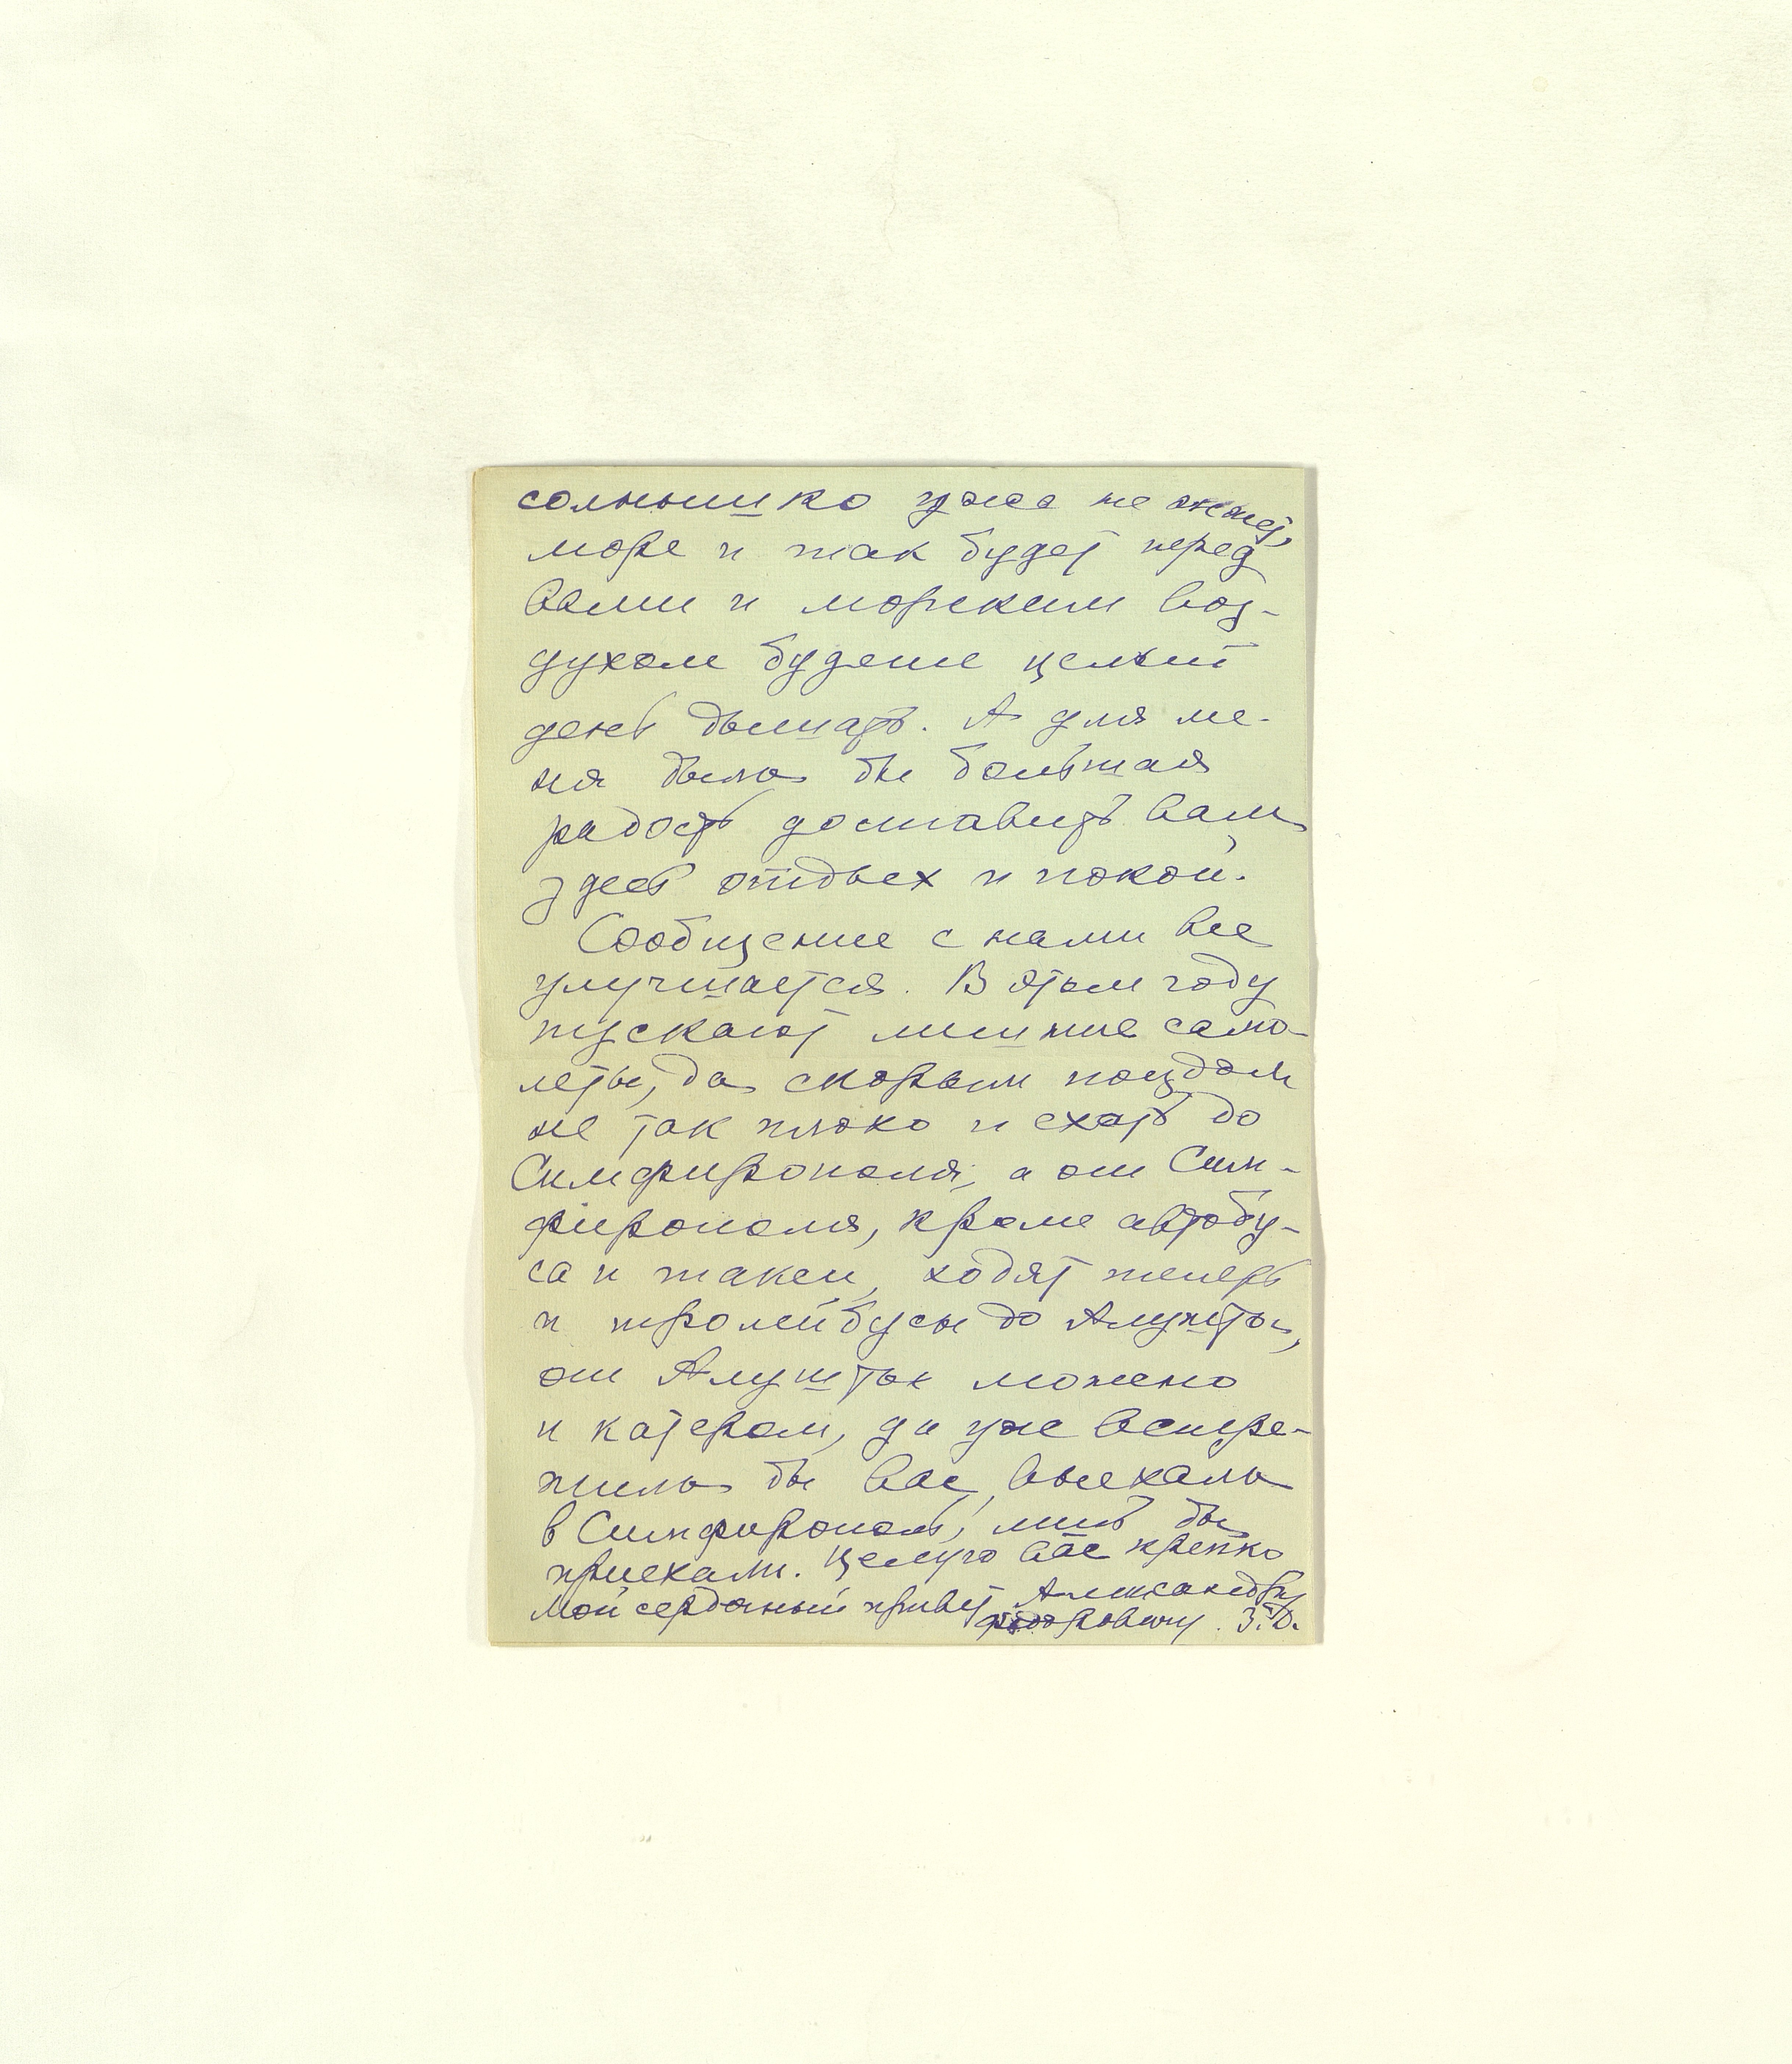 солнышко уже не жжет,
море и так будет перед
Вами и морским воз-
духом будете целый
день дышать. А для ме-
ня была бы большая
радость доставить Вам
здесь отдых и покой.
Сообщение с нами все
улучшается. В этом году
пускают лишние само-
леты, да скорым поездом
не так плохо и ехать до
Симфирополя, а от Сим-
фирополя, кроме автобу-
са и такси, ходят теперь
и тролейбусы до Алушты,
от Алушты можно
и катером, да уже встре-
тила бы Вас, выехала
в Симфирополь, лишь бы
приехали. Целую Вас крепко
Мой сердечный привет Александру
Федоровичу. З.Д.